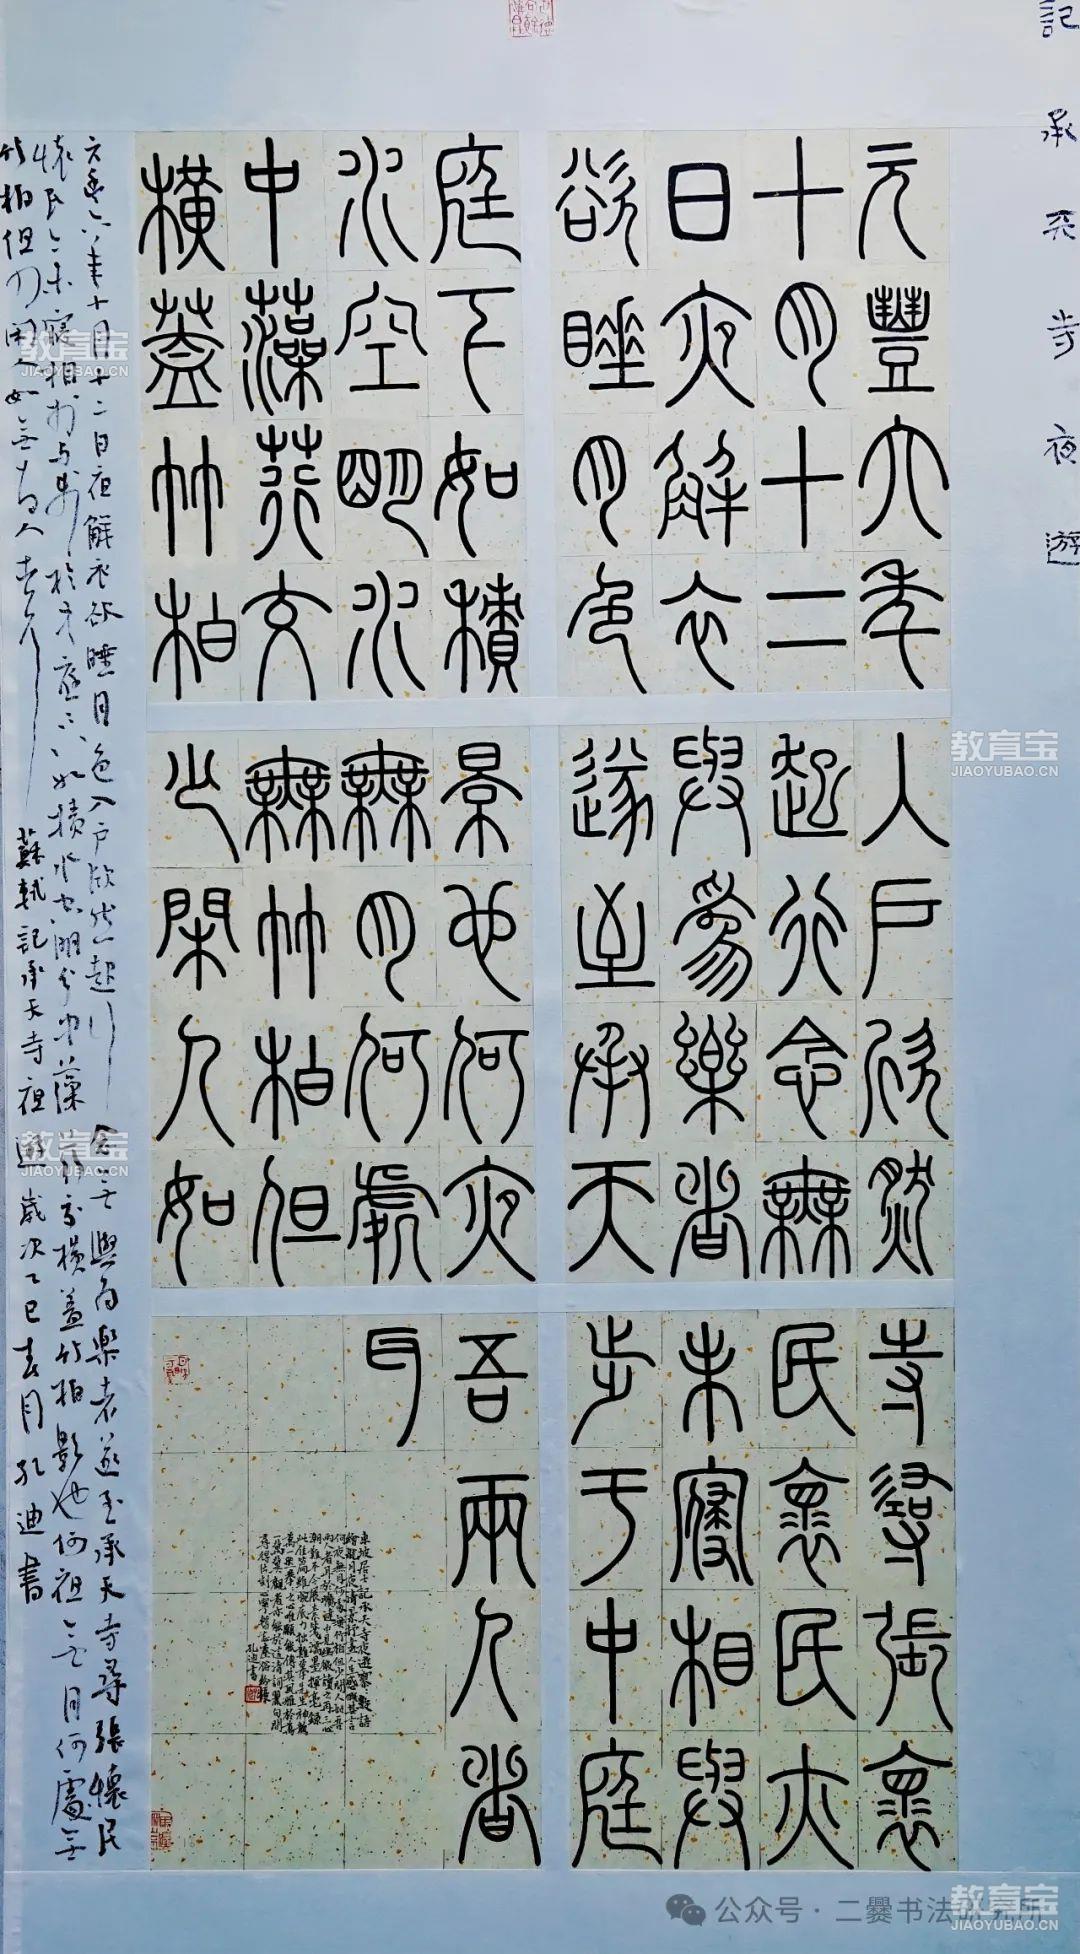 記承天寺夜遊
元豐六年
十月十二
日夜解衣
欲睡月色
入戶欣然
起行念無
與為樂者
遂至承天
寺尋張懷
民懷民亦
未寢相與
步于中庭
庭下如積
水空明水
中藻荇交
橫蓋竹柏
景也何夜
無月何處
無竹柏但
少閑人如
吾兩人者
耳
東坡居士記承天寺夜遊寥寥數語
孔迪書
元豐六年十月十二日夜解衣欲睡月色入戶欣然起行念無與為樂者遂至承天寺尋張懷民
懷民亦未寢相與步於中庭庭下如積水空明水中藻荇交橫蓋竹柏影也何夜無月何處無
竹柏但少閑人如吾兩人者耳
蘇軾記承天寺夜遊歲次乙巳春月孔迪書
教育宝
JIAOYUBAO.CN
教育宝
JIAOYUBAO.CN
教育宝
JIAOYUBAO.CN
公众号·二爨书法研究所
教育宝
JIAOYUBAO.CN